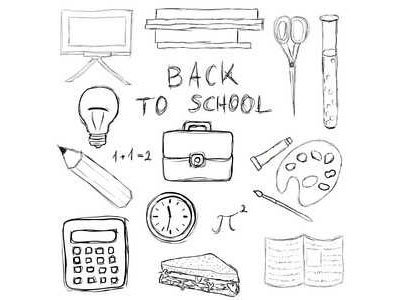 BACK
TO SCHOOL
1+1=2
π²